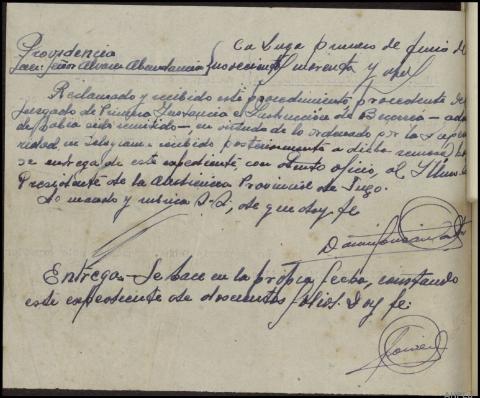 Providencia
Juez: Señor Alvarez Abundancia } En Lugo primero de Junio de
novecientos cuarenta y
Reclamado y recibido este procedimiento, procedente del
Juzgado de Primera Instancia e Instrucción de Becerreá
había sido remitido, en virtud de lo ordenado por la Superio
ridad, en telegrama recibido posteriormente a dicha remesa,
se entrega de este expediente, con atento oficio, al Iltmo. Sr.
Presidente de la Audiencia Provincial de Lugo.
Lo mandó y rubrica S.S., de que doy fe
Entrega.- Se hace en la propia fecha, constando
este expediente de doscientos folios. Doy fe: